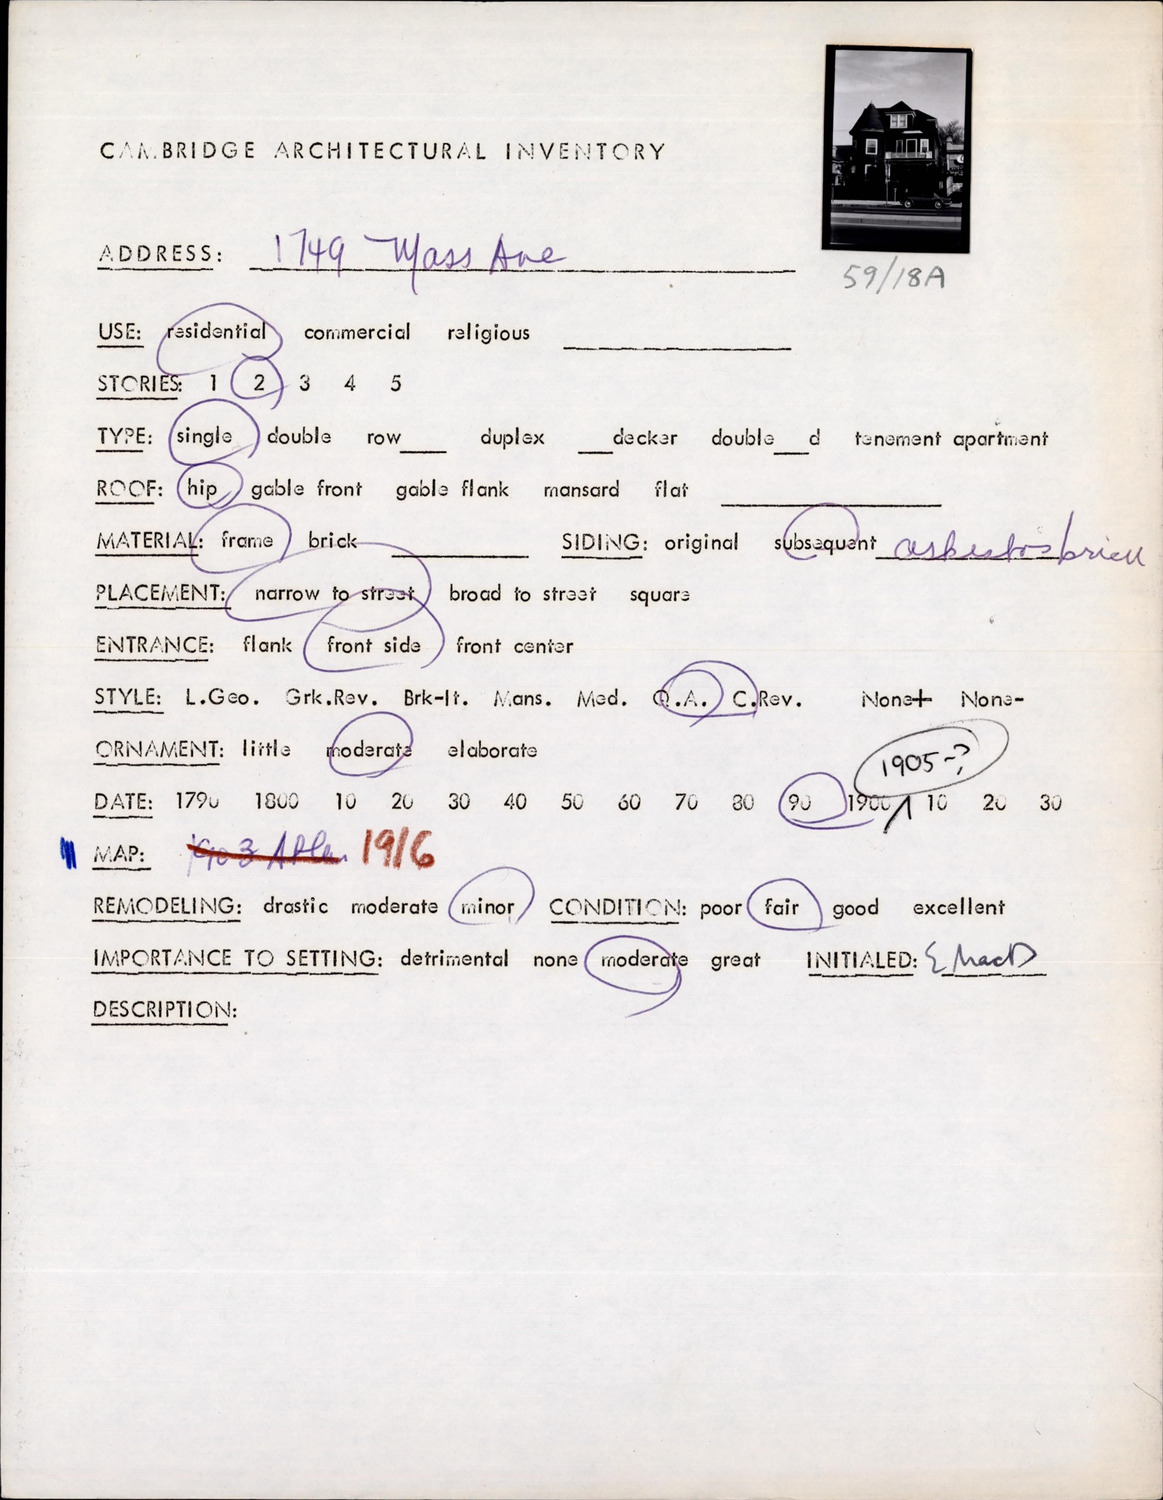 CAMBRIDGE ARCHITECTURAL INVENTORY
59/18A
ADDRESS: 1749 Mass Ave
USE: residential commercial religious
STORIES: 1 2 3 4 5
TYPE: single double row___ duplex ___decker double___d tenement apartment
ROOF: hip gable front gable flank mansard flat
MATERIAL: frame brick SIDING: original subsequent asbestos brick
PLACEMENT: narrow to street broad to street square
ENTRANCE: flank front side front center
STYLE: L.Geo. Grk.Rev. Brk-It. Mans. Med. Q.A. C.Rev. None+ None-
ORNAMENT: little moderate elaborate
1905-?
DATE: 1790 1800 10 20 30 40 50 60 70 80 90 1900 10 20 30
MAP: 1903 Atlas 1916
REMODELING: drastic moderate minor CONDITION: poor fair good excellent
IMPORTANCE TO SETTING: detrimental none moderate great INITIALED: E MacD
DESCRIPTION: